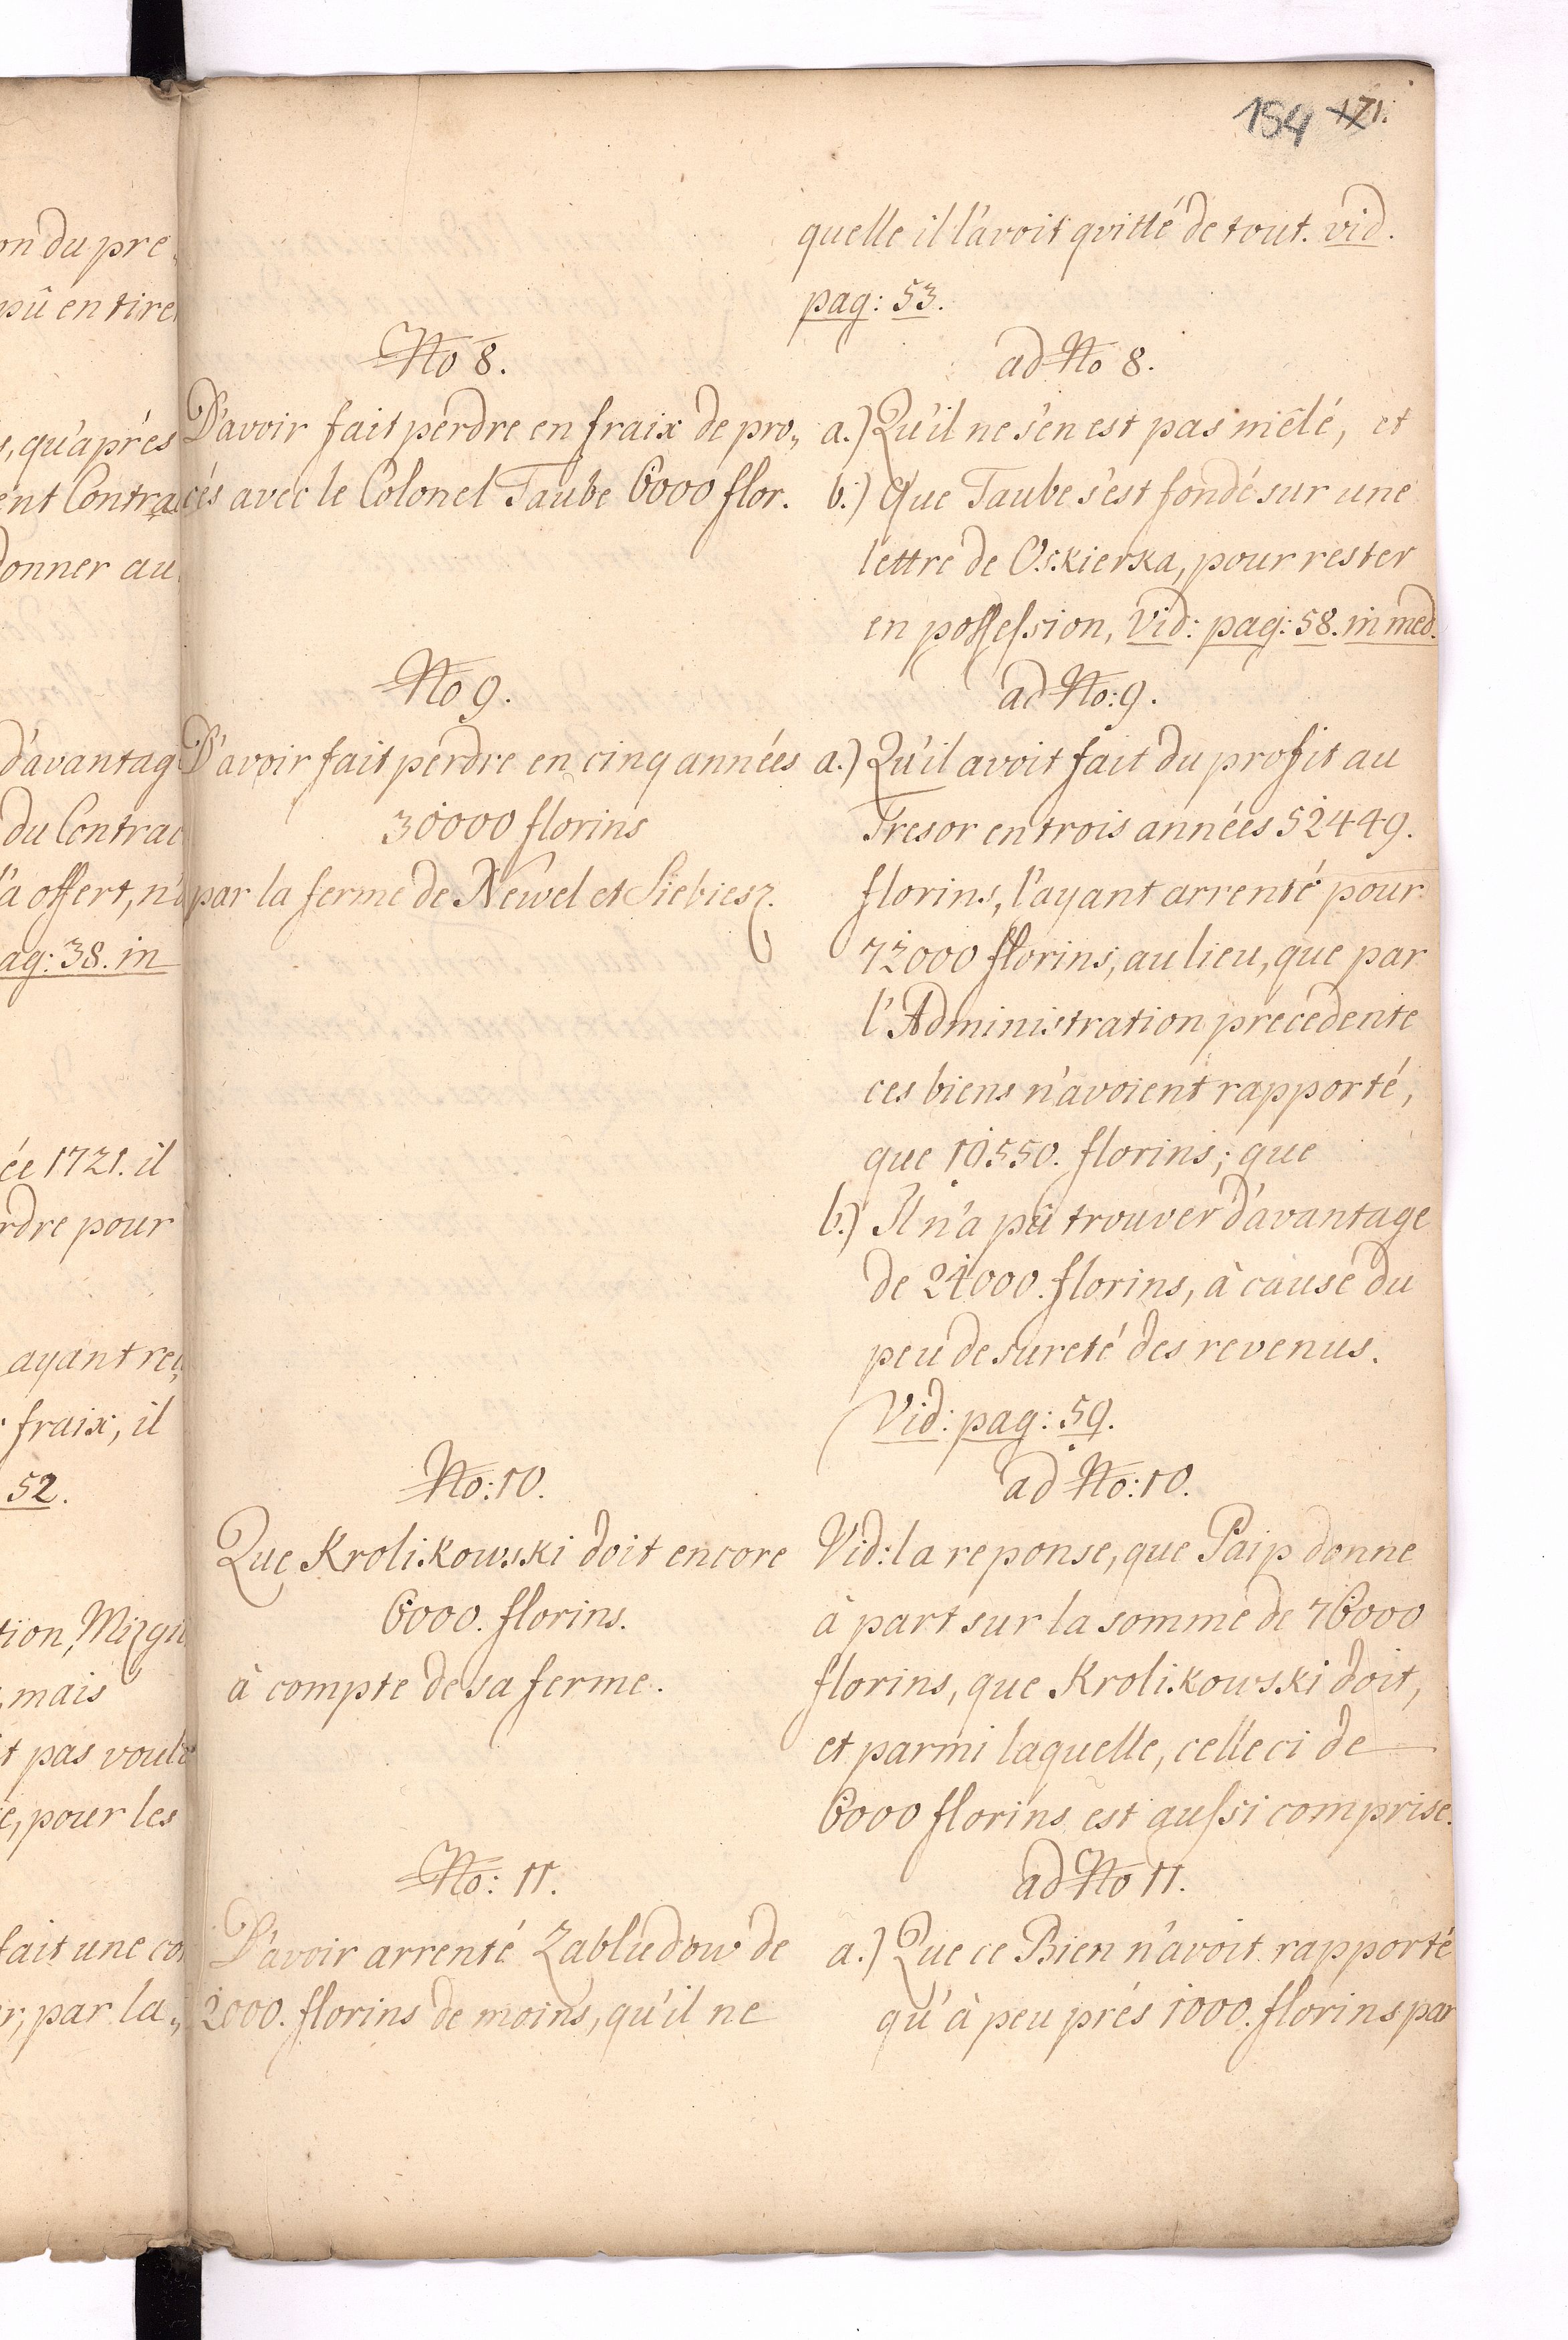 154 171.
quelle il l'avoit qvitté de tout. vid.
pag: 53.
No 8.
D'avoir fait perdre en fraix de pro„
cés avec le Colonel Taube 6000 flor.
ad No 8.
a.) Qu'il ne s'en est pas mêlé, et
b.) Que Taube s'est fondé sur une
lettre de Oskierka, pour rester
en possession, Vid: pag: 58. in med.
No 9.
D'avoir fait perdre en cinq années
30000 florins
par la ferme de Newel et Siebiesz.
ad No: 9.
a.) Qu'il avoit fait du profit au
Tresor en trois années 52449.
florins, l'ayant arrenté pour
72000 florins, au lieu, que par
l'Administration precedente
ces biens n'avoient rapporté,
que 19550. florins; que
b.) Il n'a pû trouver d'avantage
de 24000. florins, à cause du
peu de sureté des revenus.
Vid: pag: 59.
No: 10.
Que Krolikowski doit encore
6000. florins.
à compte de sa ferme.
ad No: 10.
Vid: la reponse, que Paip donne
à part sur la somme de 76000
florins, que Krolikowski doit,
et parmi laquelle, celle ci de
6000 florins est aussi comprise.
No: 11.
D'avoir arrenté Zabludow de
2000. florins de moins, qu'il ne
ad No 11.
a.) Que ce Bien n'avoit rapporté
qu'à peu prés 1000. florins par
on du pre
pû en tirer
s, qu'aprés
ent Contrac
donner au
d'avantag
du Contrac
l'a offert, n'a
ag: 38. in
ée 1721. il
rdre pour
ayant re
fraix, il
52.
tion, Mizgi
mais
t pas voulu
e, pour les
fait une co
r, par la„